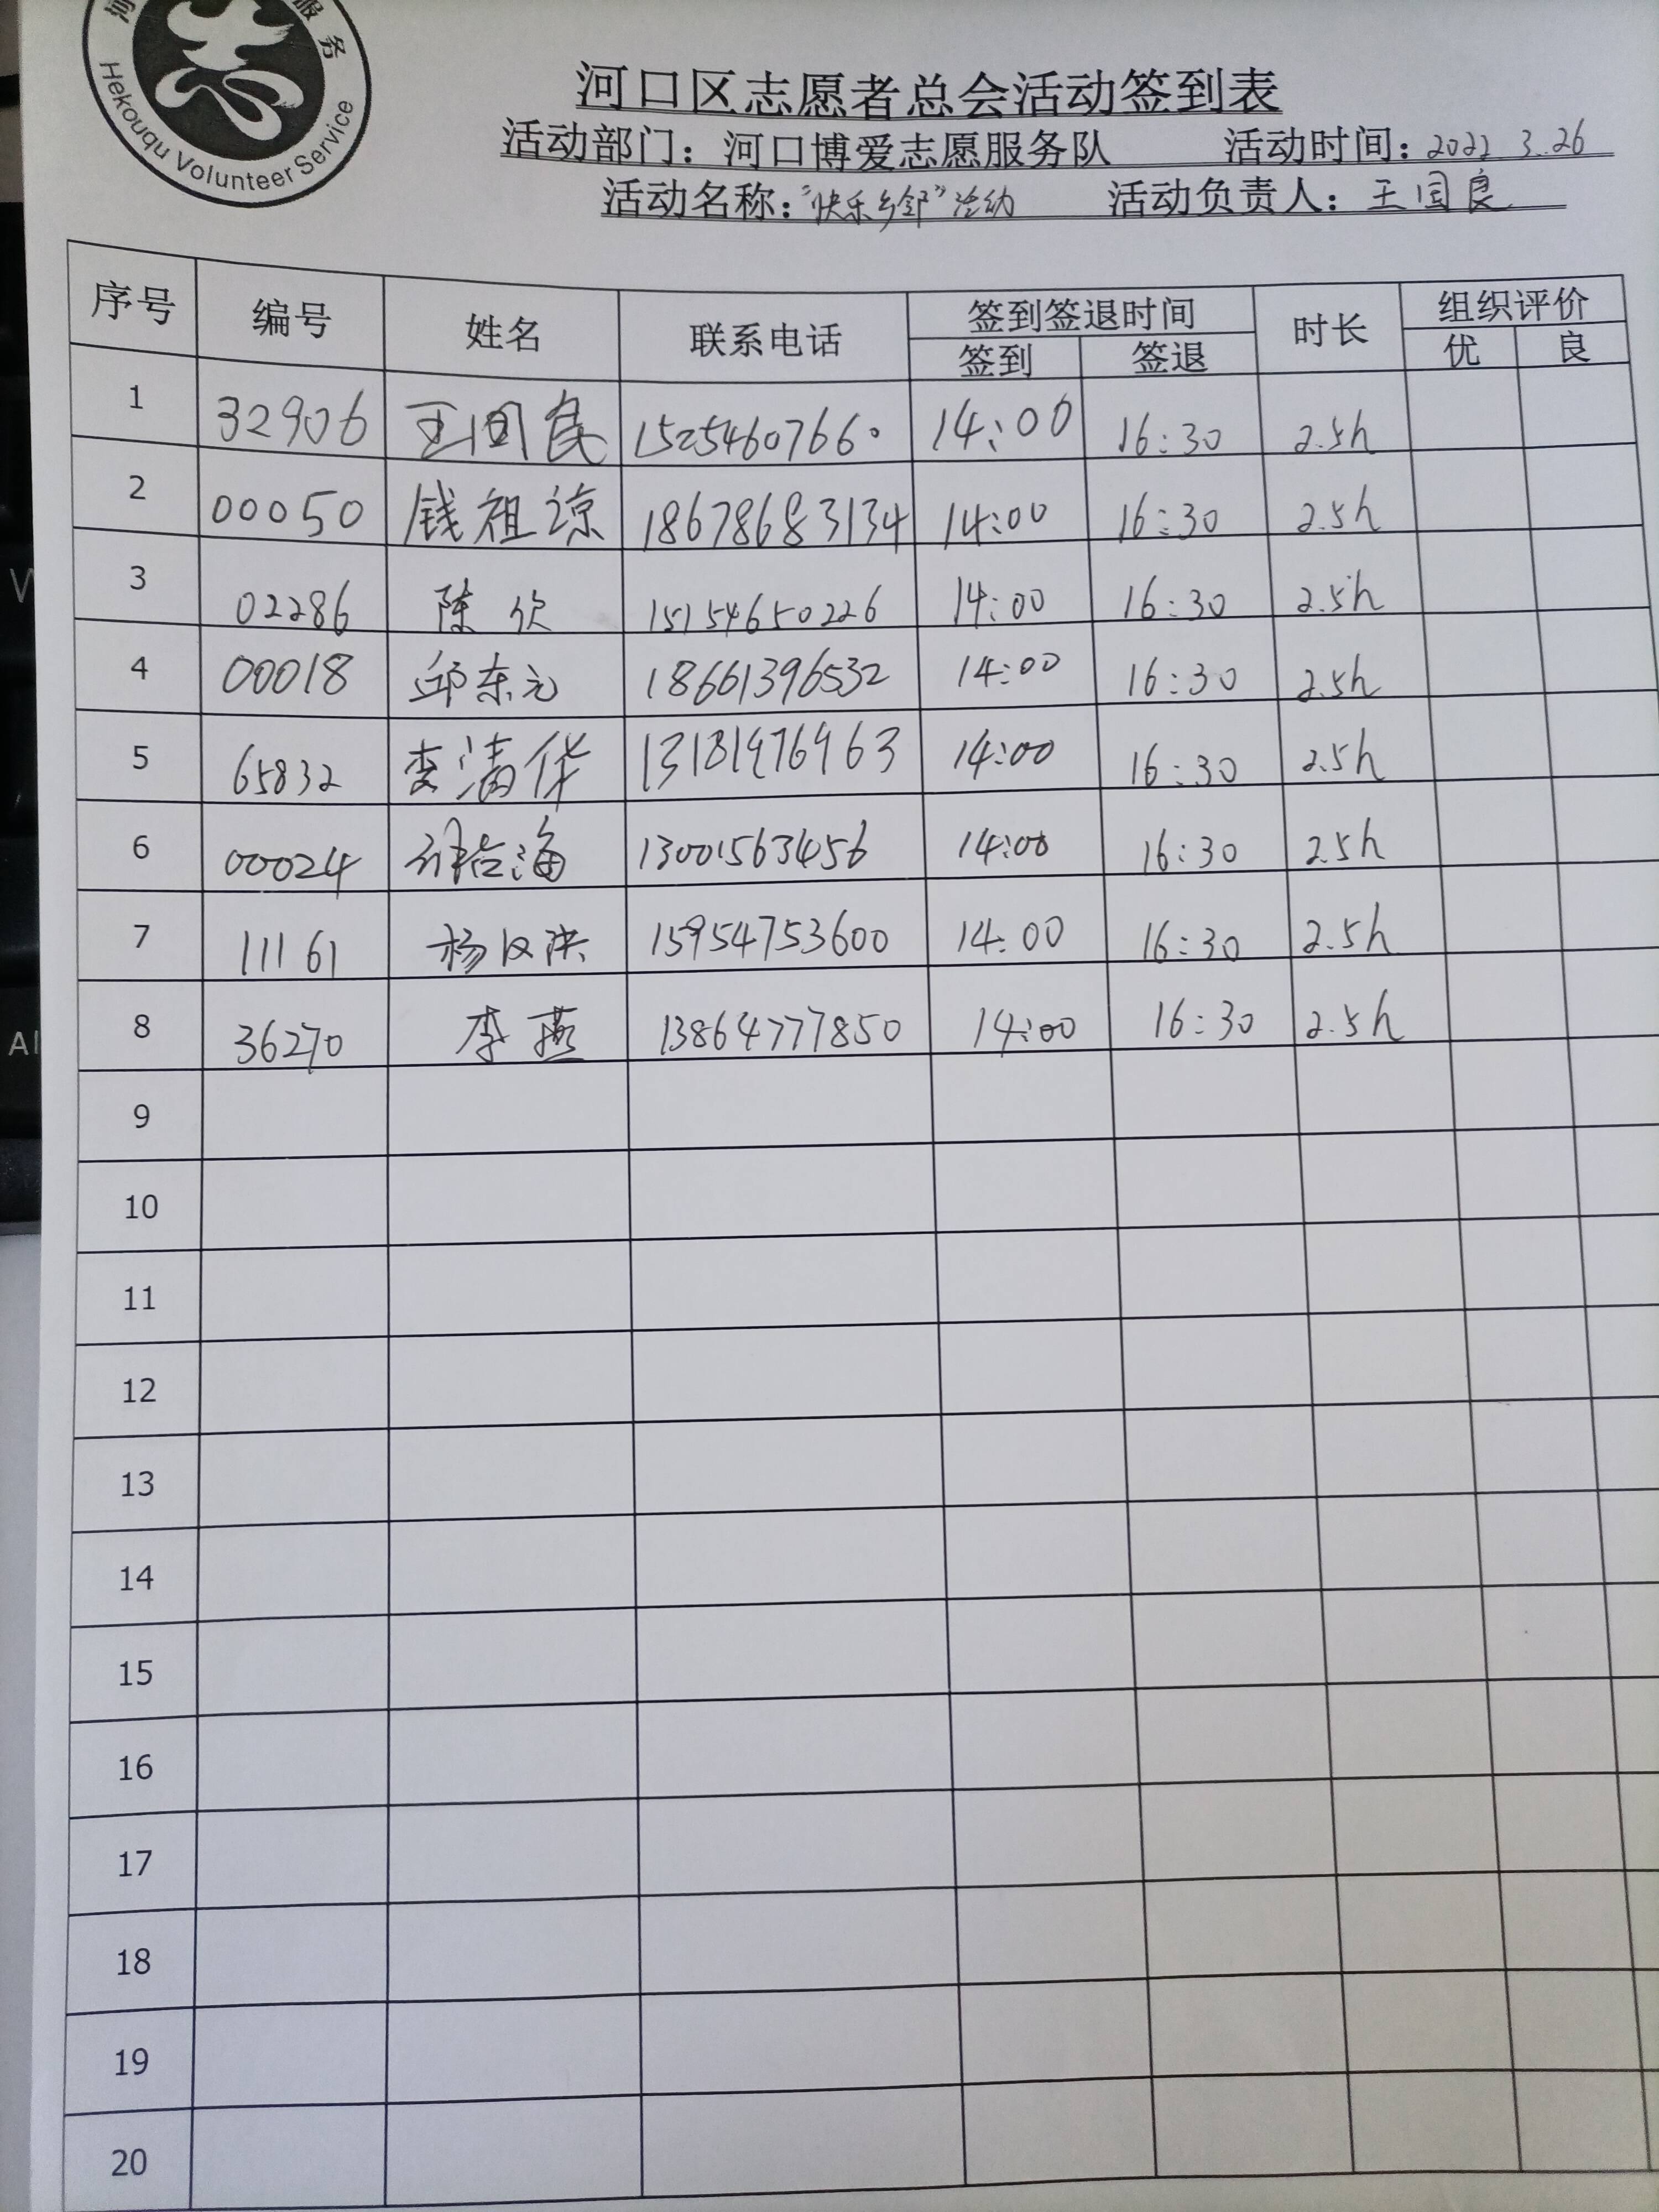 河 服务
Hekouqu Volunteer Service
河口区志愿者总会活动签到表
活动部门：河口博爱志愿服务队 活动时间：2022.3.26
活动名称：“快乐乡邻”活动 活动负责人：王国良
序号 编号 姓名 联系电话 签到签退时间 时长 组织评价
签到 签退 优 良
1 32906 王国良 15254607660 14:00 16:30 2.5h
2 00050 钱祖谅 18678683134 14:00 16:30 2.5h
3 02286 陈欣 15154650226 14:00 16:30 2.5h
4 00018 邱东元 18661396532 14:00 16:30 2.5h
5 65832 李清华 13181976963 14:00 16:30 2.5h
6 00024 13001563456 14:00 16:30 2.5h
7 11161 杨汉洪 15954753600 14:00 16:30 2.5h
8 36270 李燕 13864777850 14:00 16:30 2.5h
9
10
11
12
13
14
15
16
17
18
19
20